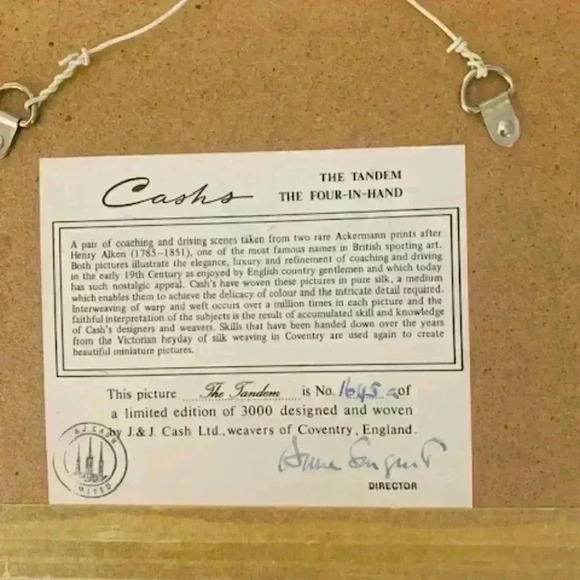 Cash's
THE TANDEM
THE FOUR-IN-HAND
A pair of coaching and driving scenes taken from two rare Ackermann prints after
Henry Alken (1785–1851), one of the most famous names in British sporting art.
Both pictures illustrate the elegance, luxury and refinement of coaching and driving
in the early 19th Century as enjoyed by English country gentlemen and which today
has such nostalgic appeal. Cash's have woven these pictures in pure silk, a medium
which enables them to achieve the delicacy of colour and the intricate detail required.
Interweaving of warp and weft occurs over a million times in each picture and the
faithful interpretation of the subjects is the result of accumulated skill and knowledge
of Cash's designers and weavers. Skills that have been handed down over the years
from the Victorian heyday of silk weaving in Coventry are used again to create
beautiful miniature pictures.
This picture The Tandem is No. 1645 of
a limited edition of 3000 designed and woven
by J.& J. Cash Ltd., weavers of Coventry, England.
J&J CASH
LIMITED
DIRECTOR